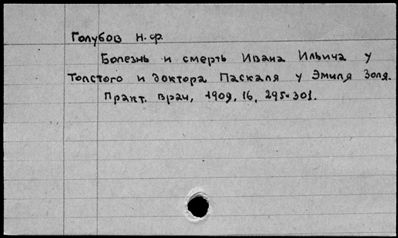 Голубов Н.Ф.
Болезнь и смерть Ивана Ильича у
Толстого и доктора Паскаля у Эмиля Золя.
Практ. врач, 1909, 16, 295-301.